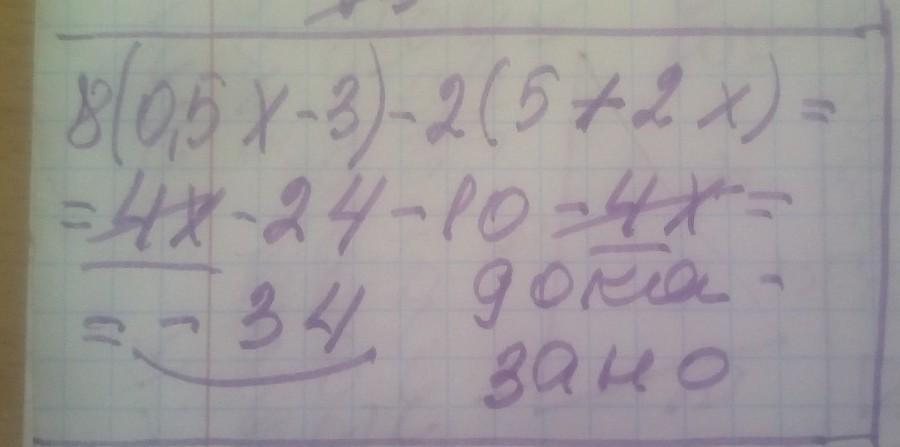 8(0,5x-3)-2(5+2x)=
=4x-24-10-4x=
=-34 дока-
зано